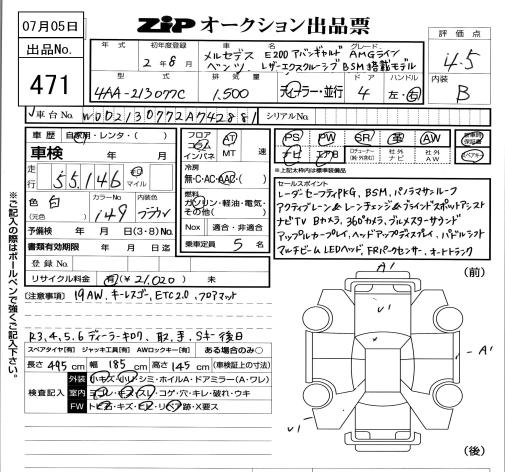 07月05日
出品No.
471
ZIP オークション出品票
年式 初年度登録 車名 グレード
2年8月
メルセデス E200アバンギャルド AMGライン
ベンツ レザーエクスクルーシブ BSM搭載モデル
型式 排気量 ドア ハンドル
4AA-213077C 1,500 ディーラー・並行 4 左・右
評価点
4.5
内装
B
車台No. W1 シリアルNo.
車歴 自家用・レンタ・( )
車検 年 月
走行 55,146 km マイル
色 白 (元色) カラーNo. 149 内装色 ブラウン
予備検 年 月 日(3・8)No.
書類有効期限 年 月 日迄
登録No.
リサイクル料金 有(¥21,020) 未
フロア コラム インパネ AT MT 速
冷房 無・C・AC・AAC・( )
燃料 ガソリン・軽油・電気・その他( )
Nox 適合・非適合
乗車定員 5 名
PS PW SR 革 AW 新車時保証書
ナビ エアB ロデューナー(純・外決別) 社外ナビ 社外AW スペアキー
※上記太枠内は標準装備品
セールスポイント
レーダーセーフティPKG、BSM、パノラマサンルーフ
アクティブレーン&レーンチェンジ&ブラインドスポットアシスト
ナビTV Bカメラ 360°カメラ、ブルメスターサウンド
アップルカープレイ、ヘッドアップディスプレイ、パドルシフト
マルチビームLEDヘッド、FRパークセンサー、オートトランク
【注意事項】 19AW、キーレスゴー、ETC2.0、フロアマット
R3,4,5,6 ディーラーキロク、取、手、Sキー後日
スペアタイヤ【有】 ジャッキ工具【有】 AWロックキー【有】 ある場合のみ○
長さ 495 cm 幅 185 cm 高さ 145 cm (車検証上の寸法)
検査記入 外装 小キズ・小凹・シミ・ホイルA・ドアミラー(A・ワレ)
室内 ヨゴレ・キズ・スレ・コゲ・穴・キレ・破れ・ウキ
FW トビ石・キズ・ヒビ・リペア跡・X要ス
※ご記入の際はボールペンで強くご記入下さい。
(前)
A1
V1
V1
A1
V1
(後)